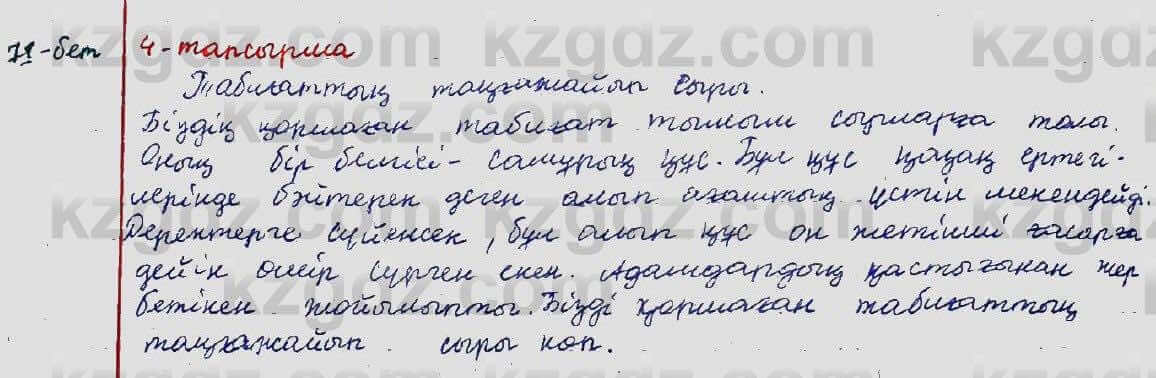 71-бет 4-тапсырма
Табиғаттың таңғажайып сыры.
Біздің қоршаған табиғат тылсым сырларға толы.
Оның бір белгісі - самұрық құс. Бұл құс қазақ ертегі-
лерінде бәйтерек деген алып ағаштың үстін мекендейді.
Деректерге сүйенсек, бұл алып құс он жетінші ғасырға
дейін өмір сүрген екен. Адамдардың қастығынан жер
бетінен жойылыпты. Бізді қоршаған табиғаттың
таңғажайып сыры көп.